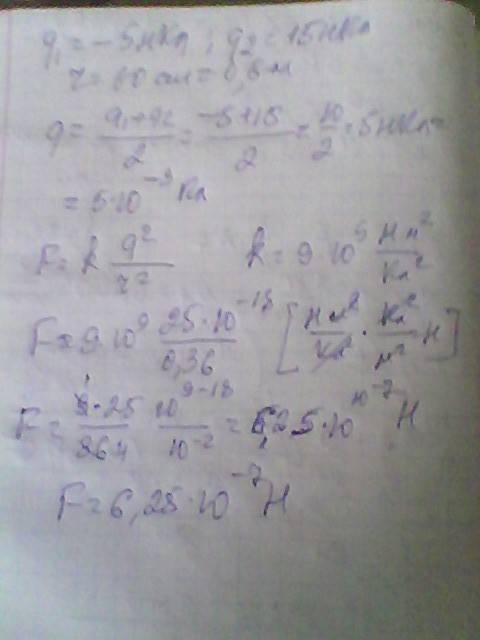 q₁ = -5 нКл ; q₂ = 15 нКл
r = 60 см = 0,6 м
q = (q₁+q₂)/2 = (-5+15)/2 = 10/2 = 5 нКл =
= 5·10⁻⁹ Кл
F = k q²/r² k = 9·10⁹ Нм²/Кл²
F = 9·10⁹ 25·10⁻¹⁸/0,36 [Нм²/Кл² · Кл²/м² Н]
F = 9·25/36 10⁹⁻¹⁸/10⁻² = 6,25·10⁻⁷ Н
F = 6,25·10⁻⁷ Н